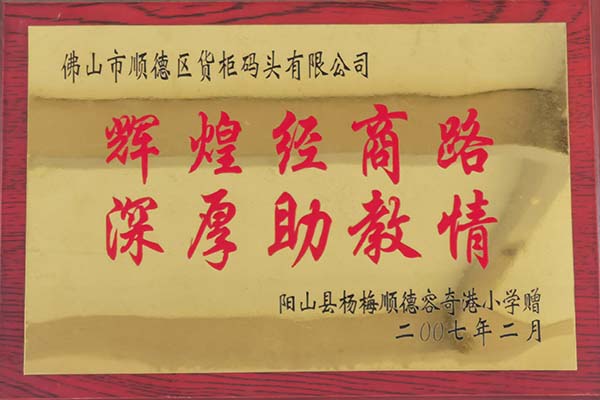 佛山市顺德区货柜码头有限公司
辉煌经商路
深厚助教情
阳山县杨梅顺德容奇港小学赠
二00七年二月